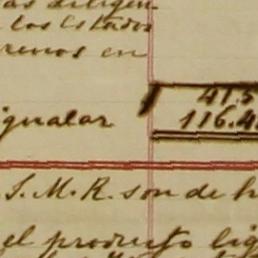 as diligen-
los Estados
renos en
41.5
igualar 116.4
S. M. R. son de h
el producto liq